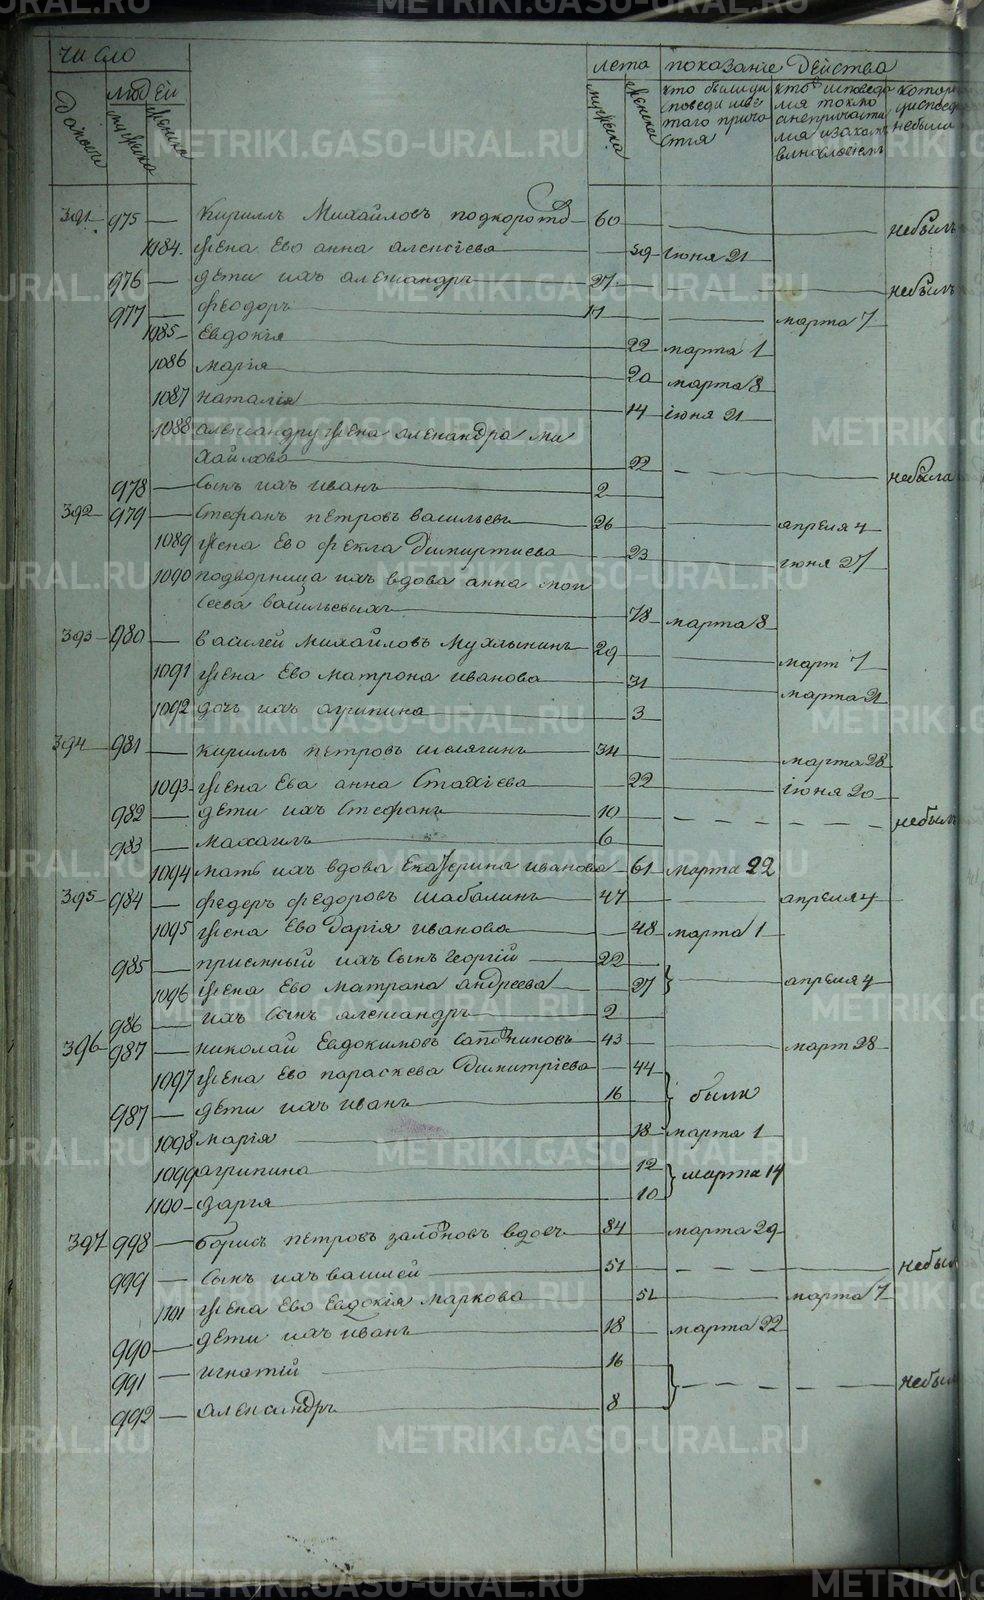 число
людей
домовъ
мужеска
женска
лета
мужеска
женска
показание действа
кто были у и
споведи и свя
таго прича
стия
кто исповеда
лися токмо
а не причасти
лися и за какимъ
винословіемъ
котор
у испове
не были
391 975 — Кириллъ Михайловъ подкорыто 60 — — небылъ
1084 жена Ево анна алексієва 59 іюня 21
976 — дети ихъ александръ 27 — — небылъ
977 — феодоръ 17 — марта 7
1085 Евдокія 22 марта 1
1086 марія 20 марта 8
1087 наталія 14 іюня 21
1088 александру жена александра ми
хайлова 22 — — небыла
978 — сынъ ихъ иванъ 2
392 979 — Стефанъ петровъ васильевъ 26 — апреля 4
1089 жена Ево фекла Димитриева 23 — іюня 27
1090 подворница ихъ вдова анна мои
сеева васильевыхъ 78 марта 8
393 980 — василей михайловъ Мухлынинъ 29 — март 7
1091 жена Ево матрона иванова 31 — марта 21
1092 дочь ихъ агрипина 3
394 981 — кириллъ петровъ шелягинъ 34 — марта 28
1093 жена Ева анна Стахієва 22 — іюня 20
982 — дети ихъ Стефанъ 10 — — небылъ
983 — михаилъ 6
1094 мать ихъ вдова Екатерина иванова 61 марта 22
395 984 — федеръ федоровъ шабалинъ 47 — апреля 4
1095 жена Ево Дарія иванова 48 марта 1
985 — приемный ихъ сынъ георгій 22
1096 жена Ево матрана андреева 27 } — апреля 4
986 — ихъ сынъ александръ 2
396 987 — николай Евдокимовъ сапожниковъ 43 — март 28
1097 жена Ево параскева Димитріева 44
987 — дети ихъ иванъ 16 } были
1098 марія 18 марта 1
1099 агрипина 12
1100 дарія 10 } марта 14
397 998 — борисъ петровъ вдовъ 84 марта 29
999 — сынъ ихъ василей 51 — — небыл
1101 жена Ево Евдокія маркова 51 — марта 7
990 — дети ихъ иванъ 18 марта 22
991 — игнатій 16
992 — александръ 8 } — — небыл
METRIKI.GASO-URAL.RU